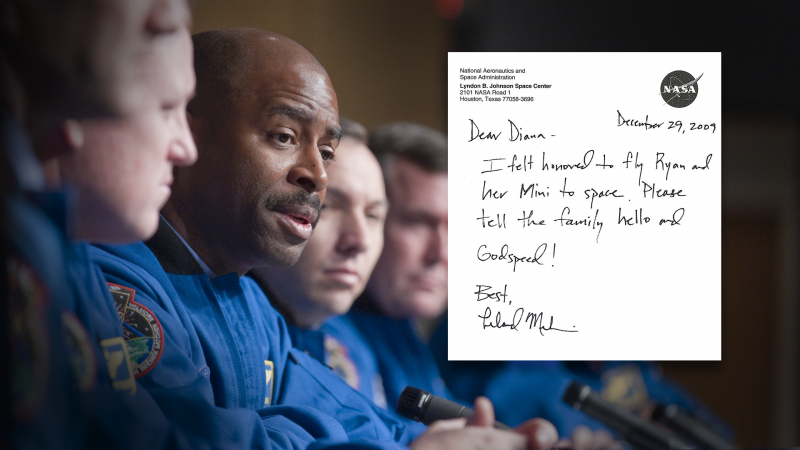 National Aeronautics and
Space Administration
Lyndon B. Johnson Space Center
2101 NASA Road 1
Houston, Texas 77058-3696
NASA
December 29, 2009
Dear Diana -
I felt honored to fly Ryan and
her Mini to space. Please
tell the family hello and
Godspeed!
Best,
Leland